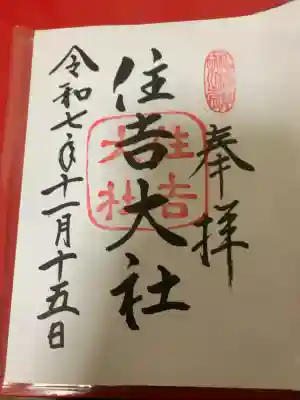 奉拝
住吉大社
住吉
大社
令和七年十一月十五日